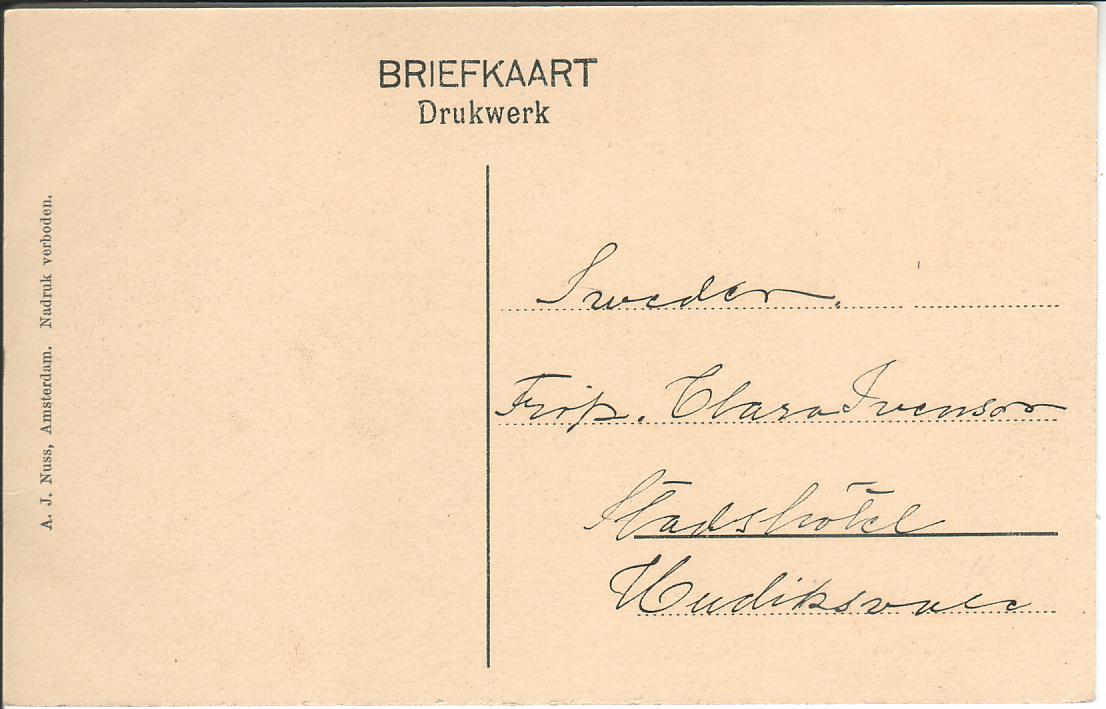 BRIEFKAART
Drukwerk
A. J. Nuss, Amsterdam. Nadruk verboden.
Sweden.
Clara Svenson
Stadshotel
Hudiksvall